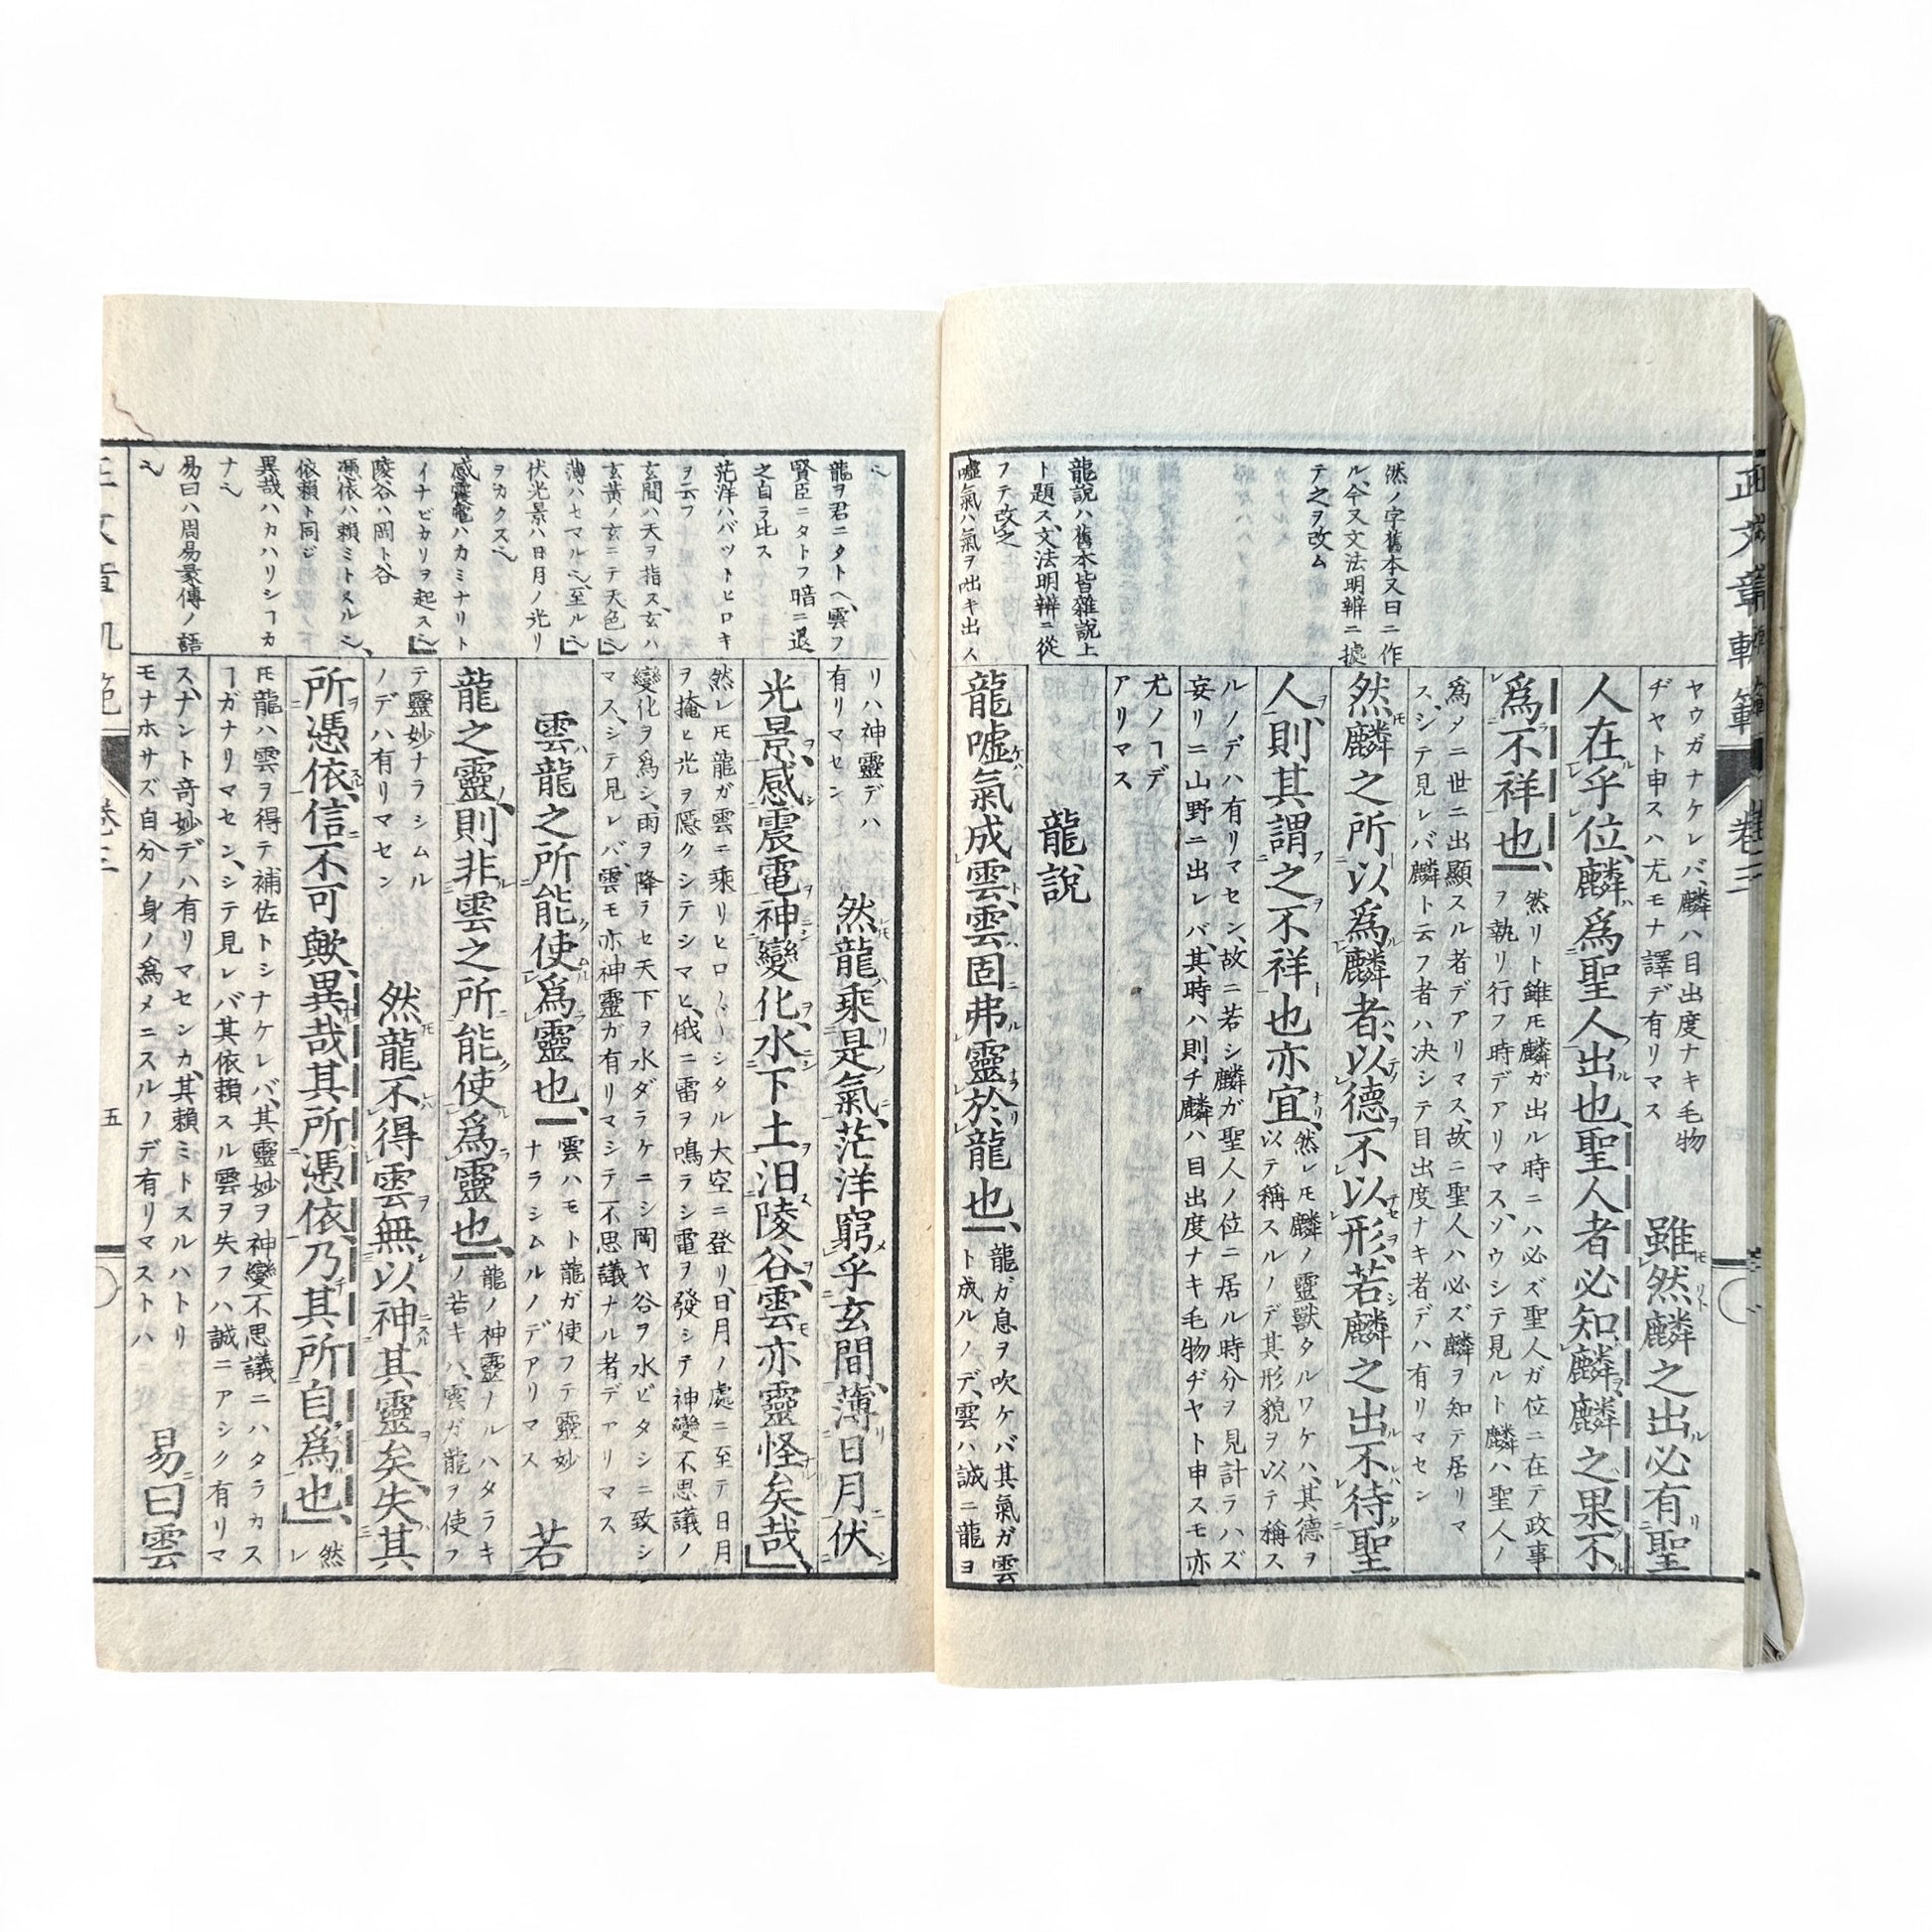 正文章軌範
卷三
然ノ字舊本又曰ニ作
ル、今又文法明辨ニ據
テ之ヲ改ム
龍說ハ舊本皆雜說上
ト題ス、文法明辨ニ從
フテ改之
噓氣ハ氣ヲ吐キ出ス
ヤウガナケレバ、麟ハ目出度ナキ毛物
ヂヤト申スハ尤モナ譯デ有リマス
雖然麟之出必有聖
人在乎位、麟爲聖人出也、聖人者必知麟、麟之果不
爲不祥也、
然リト雖𪜈麟ガ出ル時ニハ必ズ聖人ガ位ニ在テ政事
ヲ執リ行フ時デアリマス、ソウシテ見ルト麟ハ聖人ノ
爲メニ世ニ出顯スル者デアリマス、故ニ聖人ハ必ズ麟ヲ知テ居リマ
ス、シテ見レバ麟ト云フ者ハ决シテ目出度ナキ者デハ有リマセン
然麟之所以爲麟者、以德不以形、若麟之出不待聖
人、則其謂之不祥也亦宜、
然レ𪜈麟ノ靈獸タルワケハ、其德ヲ
以テ稱スルノデ其形貌ヲ以テ稱ス
ルノデハ有リマセン、故ニ若シ麟ガ聖人ノ位ニ居ル時分ヲ見計ラハズ
妄リニ山野ニ出レバ、其時ハ則チ麟ハ目出度ナキ毛物ヂヤト申スモ亦
尤ノヿデ
アリマス
龍說
龍噓氣成雲、雲固弗靈於龍也、
龍ガ息ヲ吹ケバ其氣ガ雲
ト成ルノデ、雲ハ誠ニ龍ヨ
龍ヲ君ニタトヘ、雲フ
賢臣ニタトフ暗ニ退
之自ラ比ス
茫洋ハバットヒロキ
ヲ云フ
玄間ハ天ヲ指ス、玄ハ
玄黃ノ玄ニテ天色
薄ハセマル、至ル
伏光景ハ日月ノ光リ
ヲカクス
感震電ハカミナリト
イナビカリヲ起ス
陵谷ハ岡ト谷
憑依ハ賴ミトスル、
依賴ト同ジ
異哉ハカハリシヿカ
ナ
易曰ハ周易彖傳ノ語
リハ神靈デハ
有リマセン
然龍乘是氣、茫洋窮乎玄間、薄日月伏
光景、感震電、神變化、水下土、汩陵谷、雲亦靈怪矣哉、
然レ𪜈龍ガ雲ニ乘リヒロ〱シタル大空ニ登リ、日月ノ處ニ至テ日月
ヲ掩ヒ光ヲ隱クシテシマヒ、俄ニ雷ヲ鳴ラシ電ヲ發シテ神變不思議ノ
變化ヲ爲シ、雨ヲ降ラセ天下ヲ水ダラケニシ岡ヤ谷ヲ水ビタシニ致シ
マス、シテ見レバ、雲モ亦神靈ガ有リマシテ不思議ナル者デアリマス
雲龍之所能使爲靈也、
雲ハモト龍ガ使フテ靈妙
ナラシムルノデアリマス
若
龍之靈、則非雲之所能使爲靈也、
龍ノ神靈ナルハタラキ
ノ若キハ、雲ガ龍ヲ使フ
テ靈妙ナラシムル
ノデハ有リマセン
然龍不得雲、無以神其靈矣、失其
所憑依、信不可歟、異哉其所憑依、乃其所自爲也、
然レ
𪜈龍ハ雲ヲ得テ補佐トシナケレバ、其靈妙ヲ神變不思議ニハタラカス
ヿガナリマセン、シテ見レバ其依賴スル雲ヲ失フハ誠ニアシク有リマ
ス、ナント奇妙デハ有リマセンカ、其賴ミトスルハトリ
モナホサズ自分ノ身ノ爲メニスルノデ有リマストハ
易曰雲
五